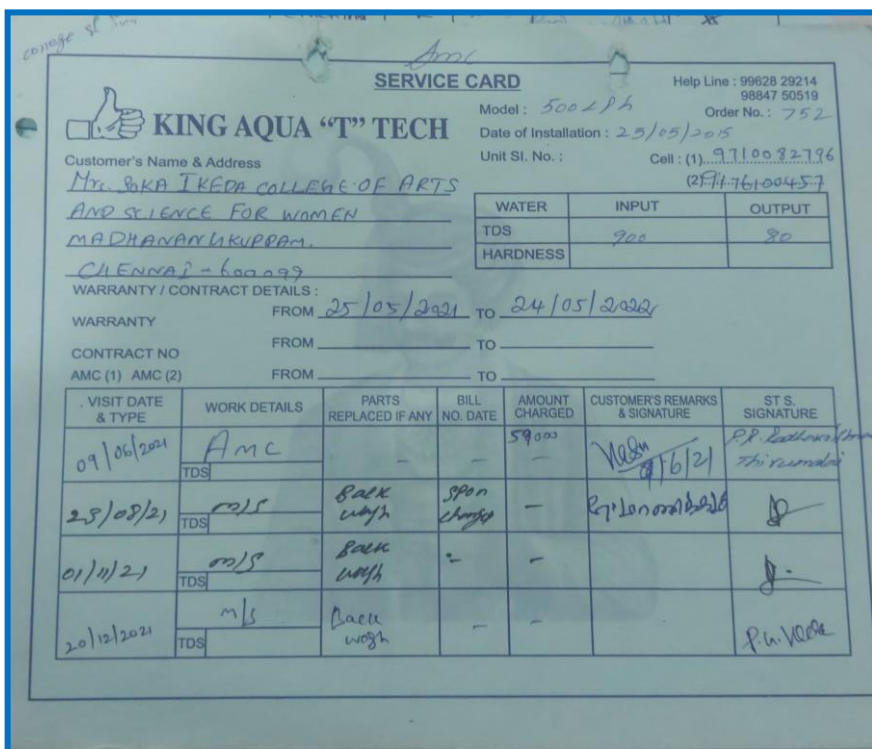 college of
Amc
SERVICE CARD
Help Line : 99628 29214
98847 50519
KING AQUA “T” TECH
Model : 500 LPh
Order No. : 752
Date of Installation : 25/05/2015
Unit Sl. No. :
Cell : (1) 9710082796
(2) 9176100457
Customer's Name & Address
SOKA IKEDA COLLEGE OF ARTS
AND SCIENCE FOR WOMEN
MADHANANGKUPPAM.
CHENNAI - 600099
WATER INPUT OUTPUT
TDS 900 80
HARDNESS
WARRANTY / CONTRACT DETAILS :
WARRANTY FROM 25/05/2021 TO 24/05/2022
CONTRACT NO FROM TO
AMC (1) AMC (2) FROM TO
. VISIT DATE & TYPE WORK DETAILS PARTS REPLACED IF ANY BILL NO. DATE AMOUNT CHARGED CUSTOMER'S REMARKS & SIGNATURE ST S. SIGNATURE
09/06/2021 AMC - - 59000 /6/21 Thirumalai
TDS
23/08/21 m/s Back wash -
TDS
01/11/21 m/s Back wash - -
TDS
20/12/2021 m/s Back wogh - -
TDS